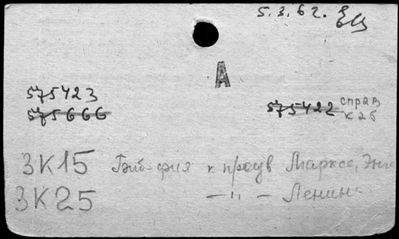 5.3.62.
А
575423
575666
575422 справ
к25
3К15 Биб-фия к произв Маркса, Энг
3К25 — " — Ленин